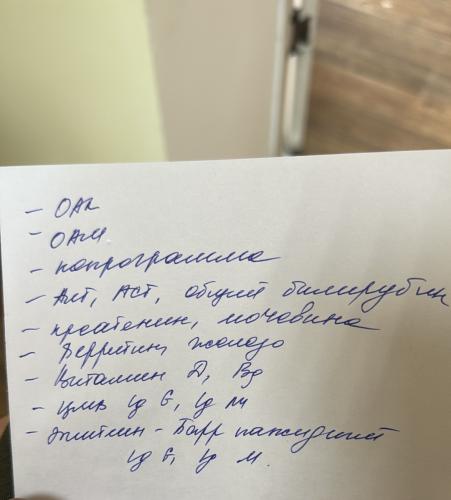 - ОАК
- ОАМ
- копрограмма
- Алт, АСТ, общий билирубин
- креатенин, мочевина
- Ферритин железо
- Витамин D, B9
- ЦМВ Ig G, Ig M
- Эпштеин - Барр
Ig G, Ig M.